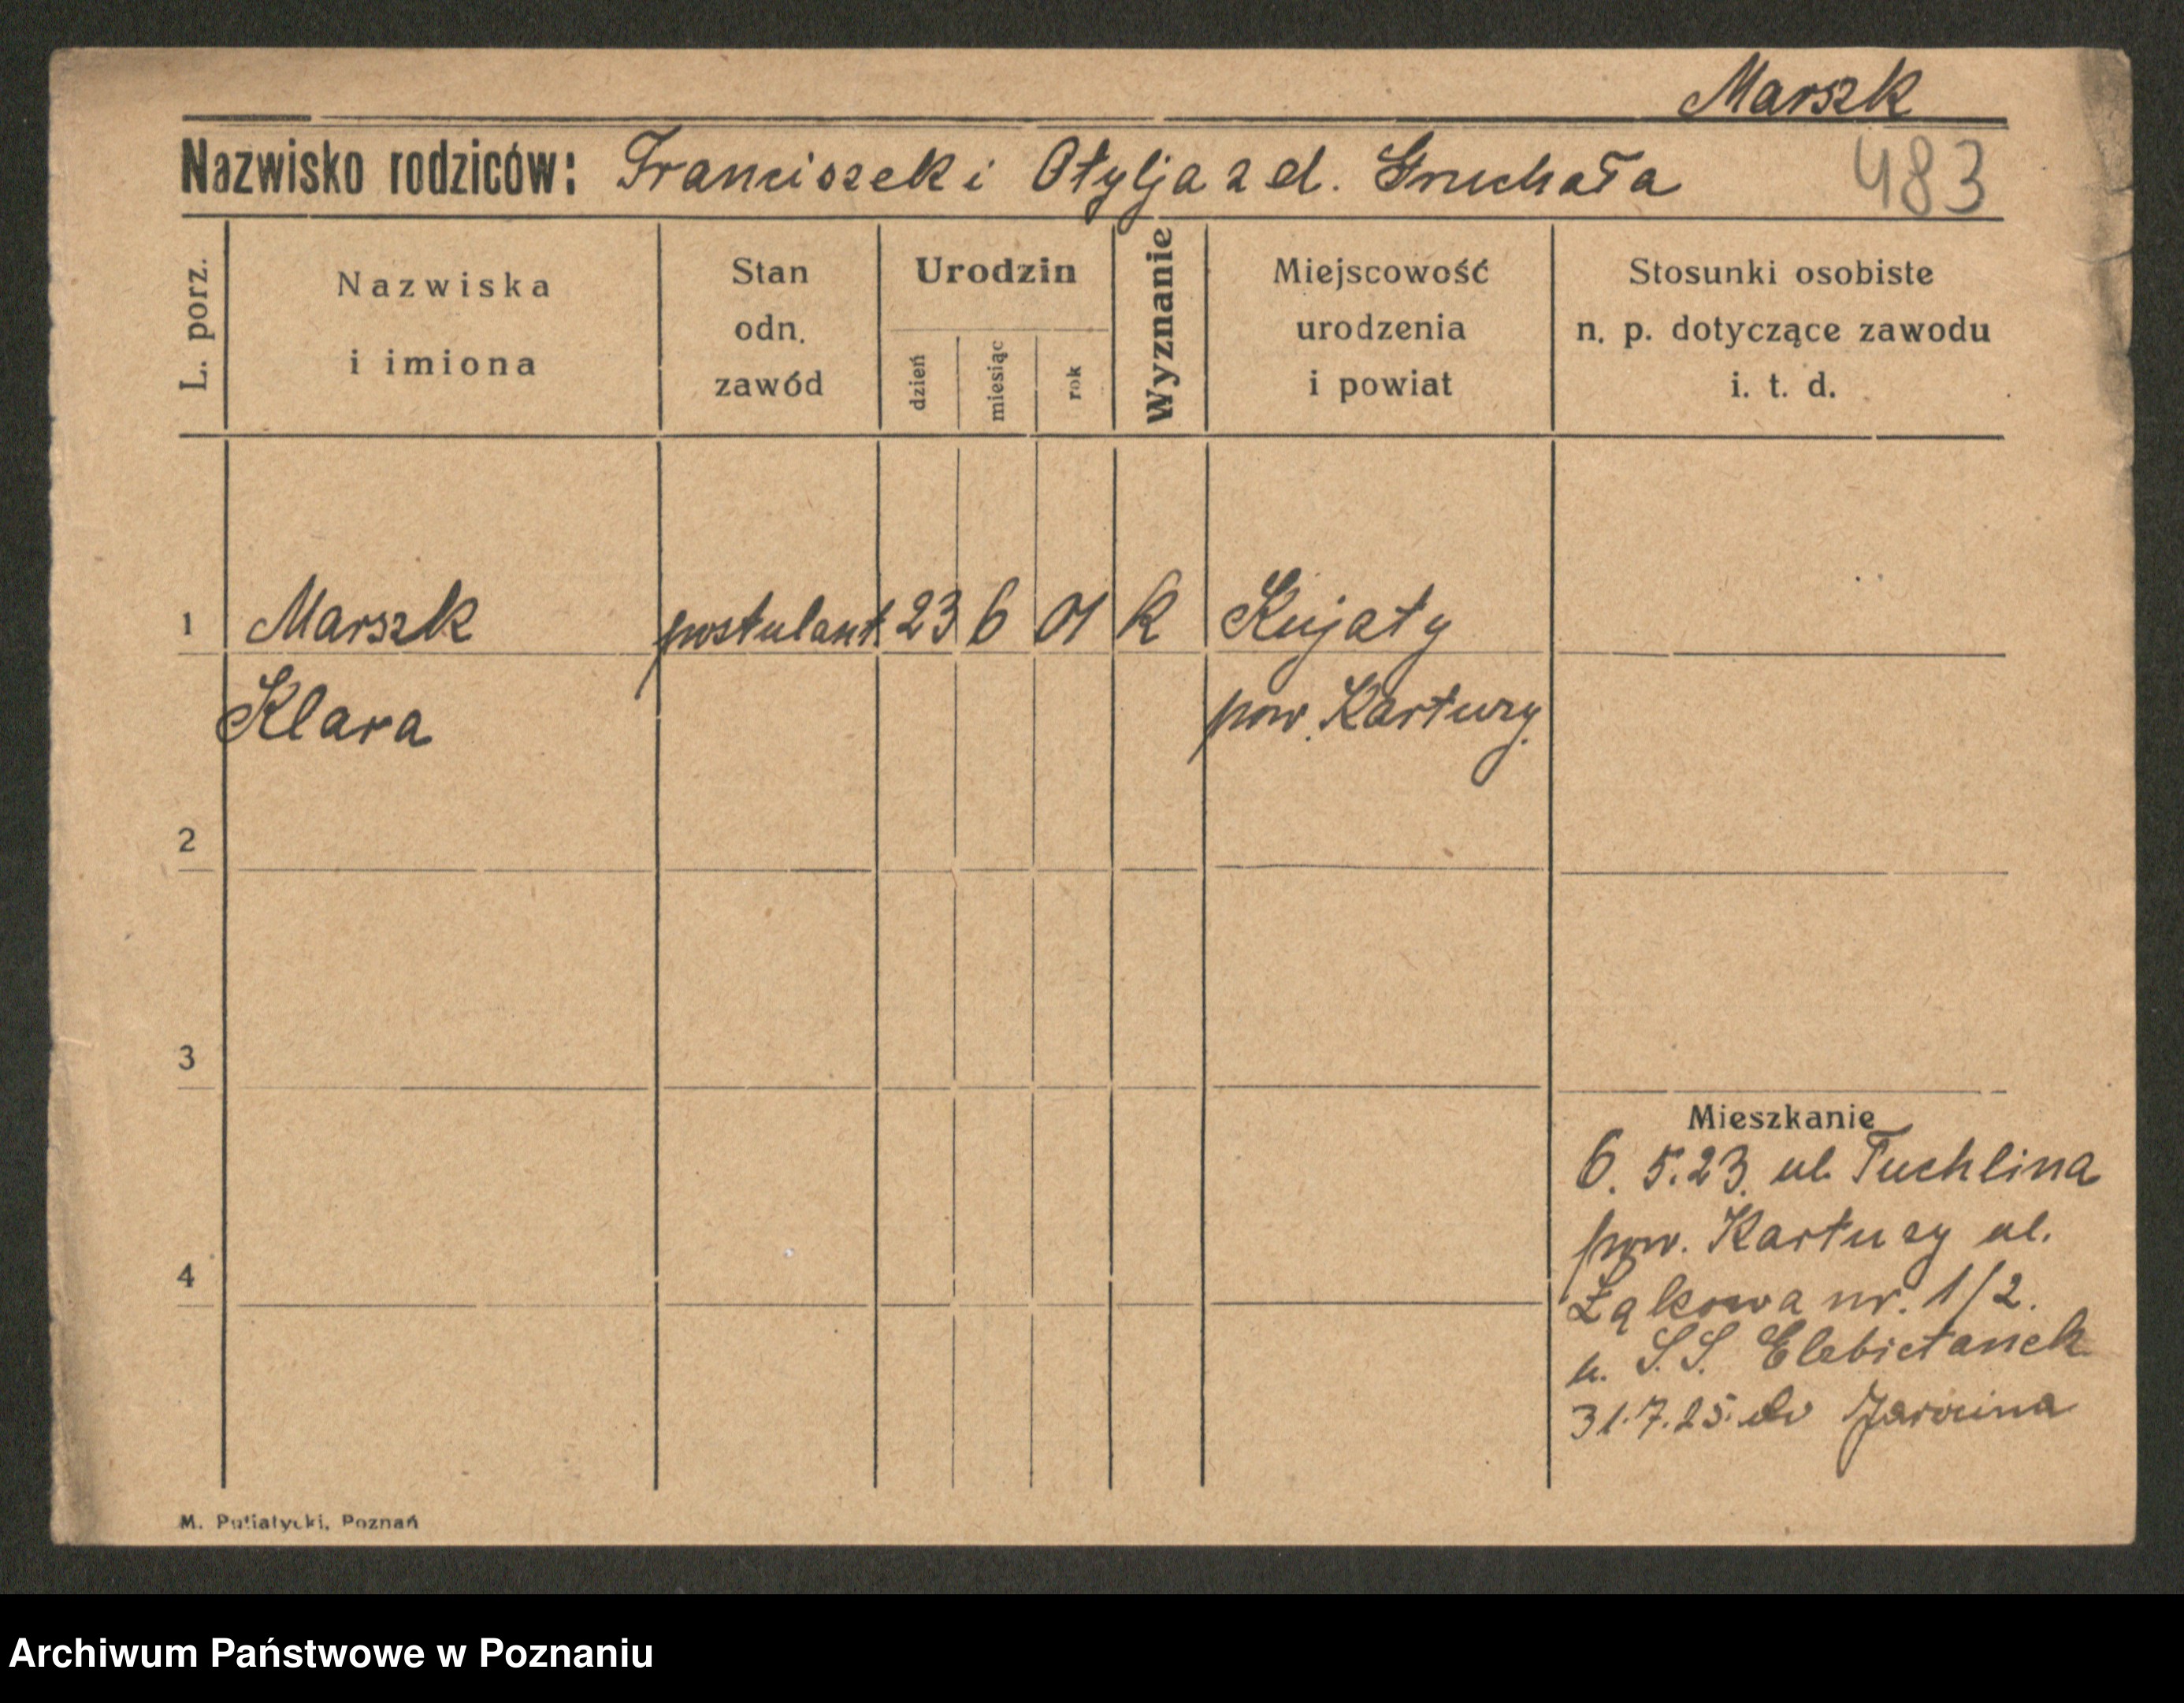 Marszk
Nazwisko rodziców: Franciszek i Otylja z d. Gruchała
483
L. porz.
Nazwiska
i imiona
Stan
odn.
zawód
Urodzin
dzień
miesiąc
rok
Wyznanie
Miejscowość
urodzenia
i powiat
Stosunki osobiste
n. p. dotyczące zawodu
i. t. d.
1 Marszk postulant 23 6 01 k Kujaty
Klara pow. Kartuzy.
2
3
Mieszkanie
6. 5. 23. ul. Tuchlina
pow. Kartuzy ul.
4
Łąkowa nr. 1/2.
u. S.S. Elebietanek
31.7.25. do Jarocina
M. Putiatycki, Poznań
Archiwum Państwowe w Poznaniu